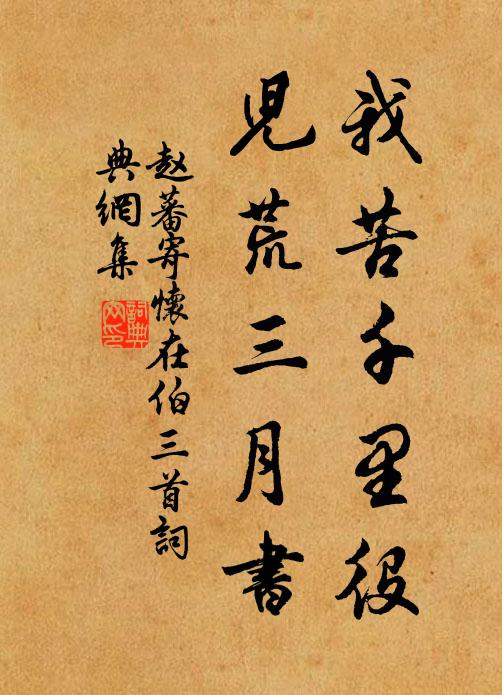 我苦千里役
児荒三月書
赵蕃寄懷在伯三首詞
典網集
詞典
网印